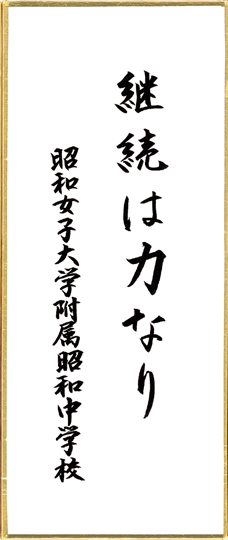 継続は力なり
昭和女子大学附属昭和中学校